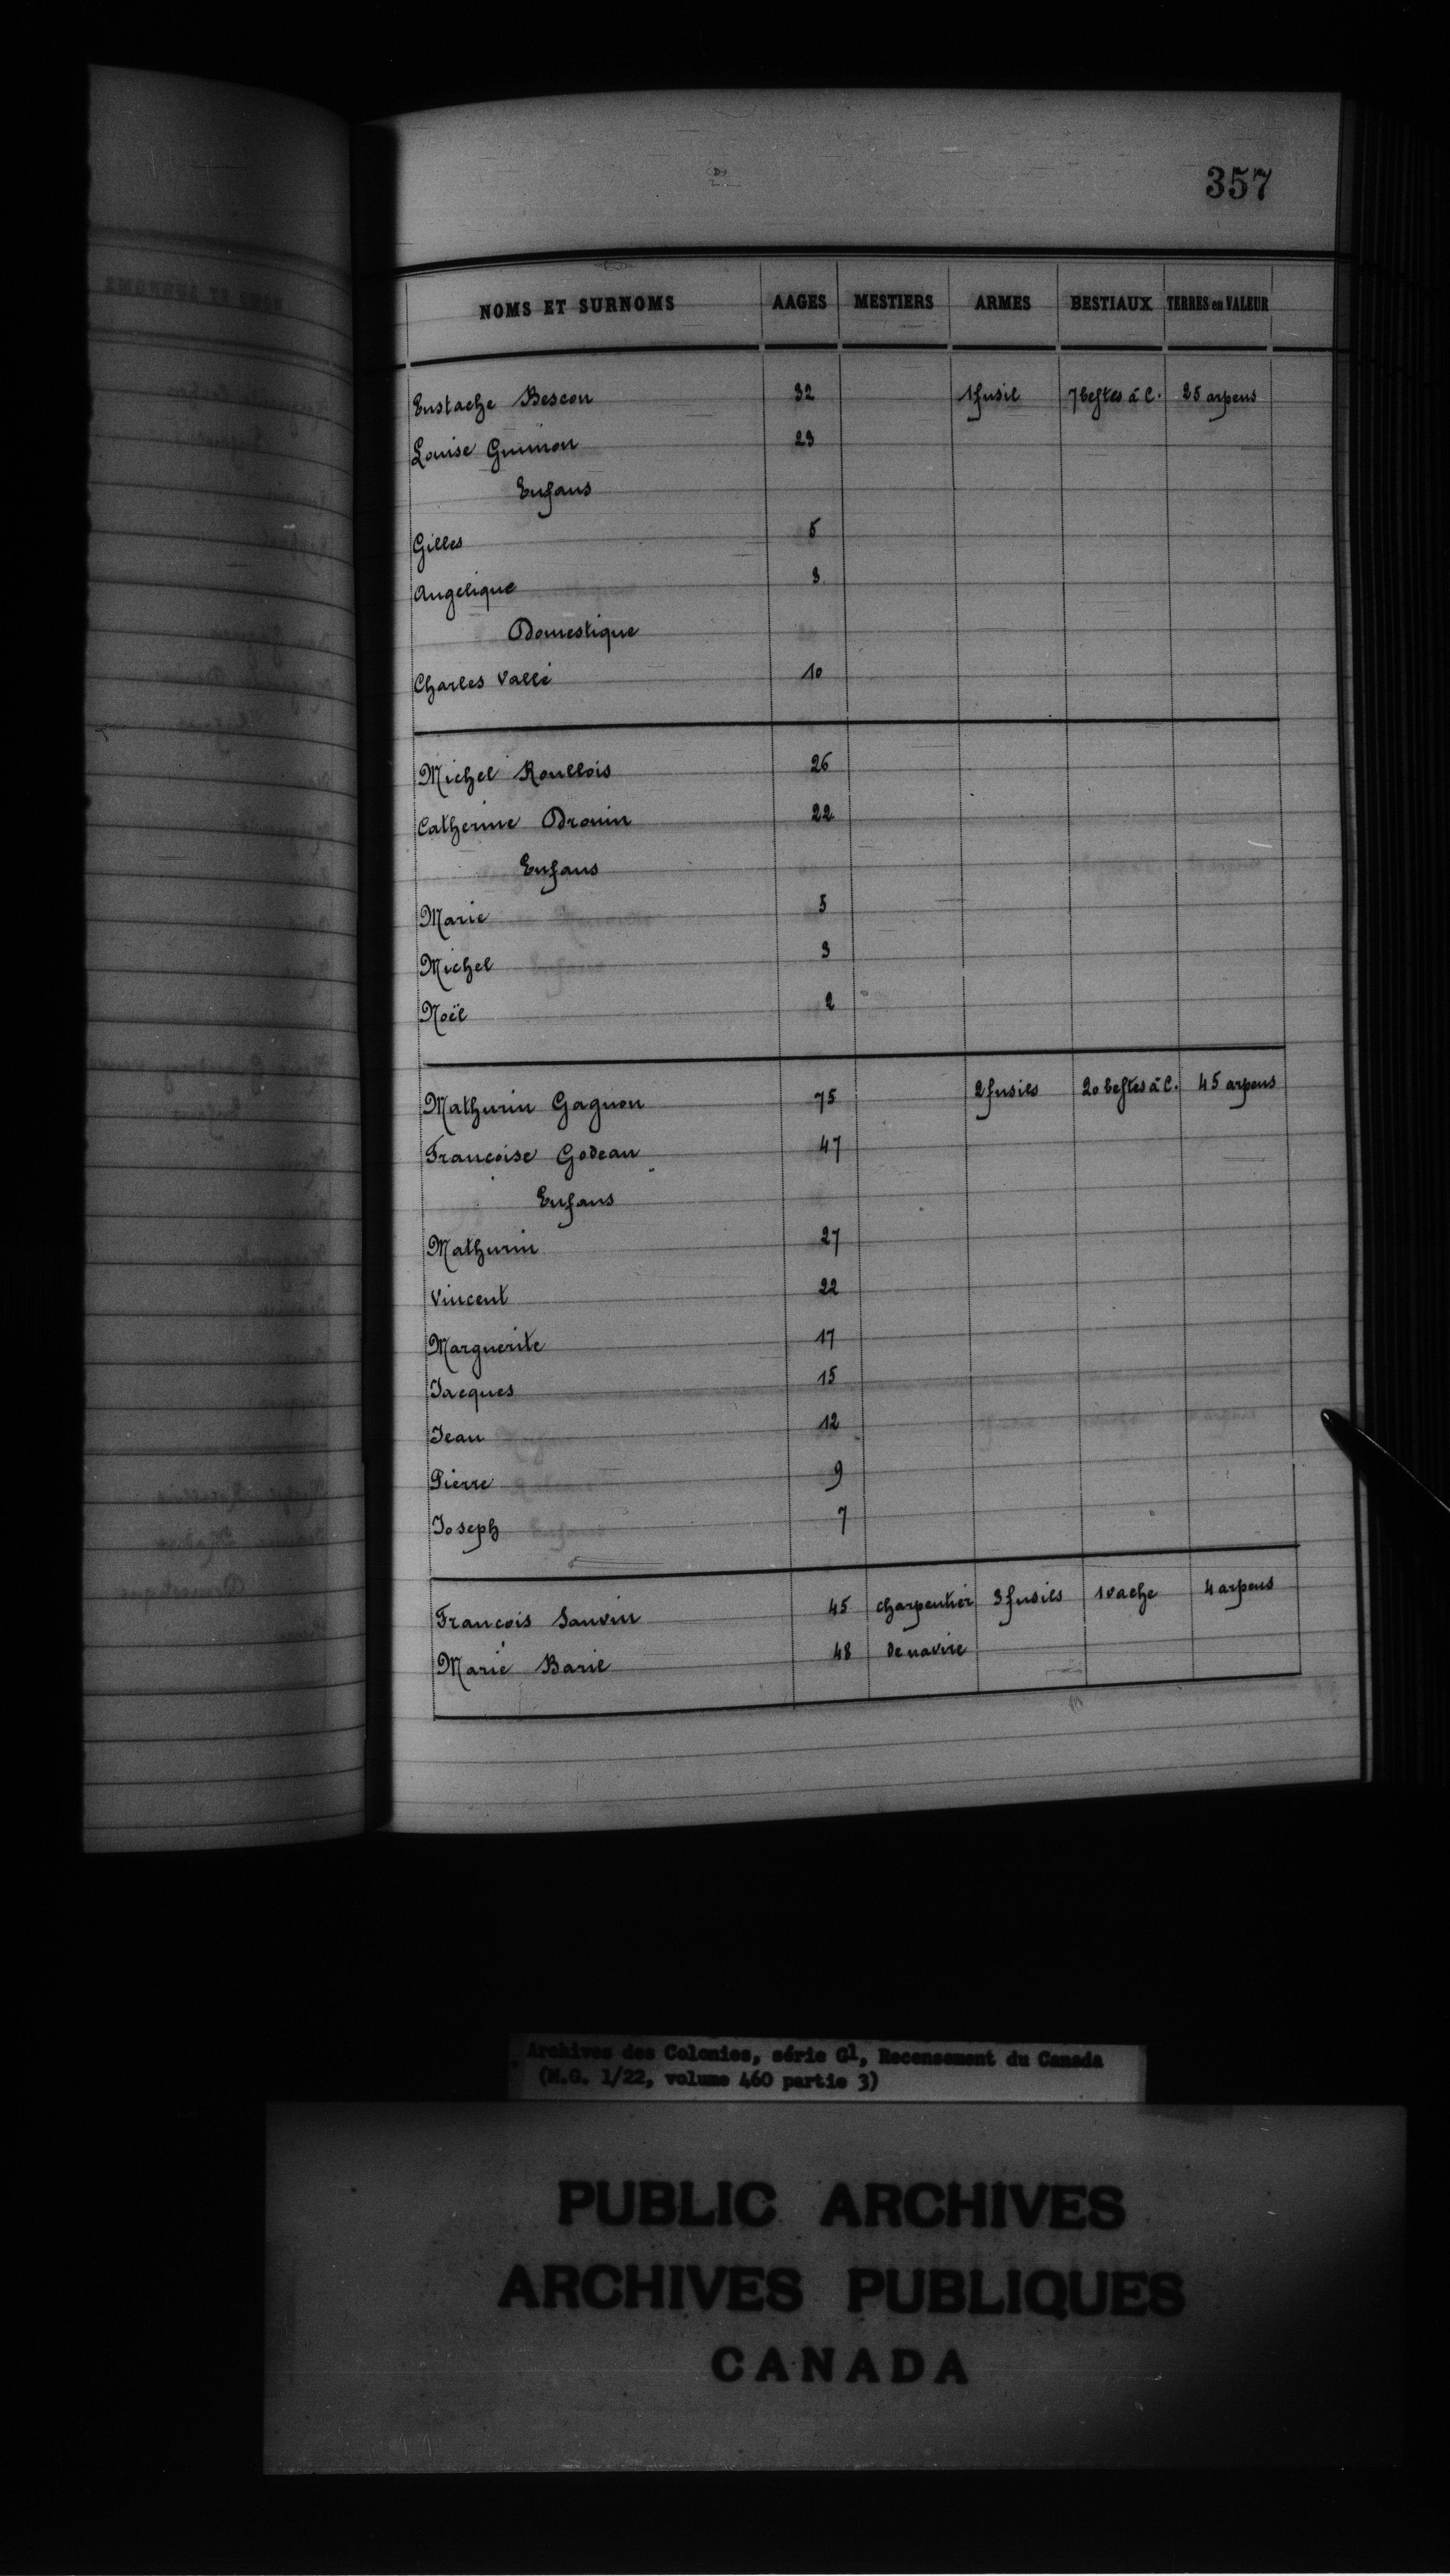 357
NOMS ET SURNOMS AAGES MESTIERS ARMES BESTIAUX TERRES en VALEUR
Eustache Bescon 32 1 fusil 7 bestes à C. 25 arpens
Louise Guimon 23
Enfans
Gilles 5
Angelique 3
Domestique
Charles Vallé 10
Michel Roullois 26
Catherine Drouin 22
Enfans
Marie 5
Michel 3
Noël 2
Mathurin Gagnon 75 2 fusils 20 bestes à C. 45 arpens
Francoise Godeau 47
Enfans
Mathurin 27
Vincent 22
Marguerite 17
Jacques 15
Jean 12
Pierre 9
Joseph 7
Francois Sauvin 45 charpentier 3 fusils 1 vache 4 arpens
Marie Baril 48 de navire
Archives des Colonies, série G1, Recensement du Canada
(M.G. 1/22, volume 460 partie 3)
PUBLIC ARCHIVES
ARCHIVES PUBLIQUES
CANADA